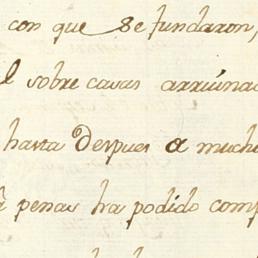 con que se fundaron,
sobre casas arruina
hasta Despues a much
penas ha podido comp